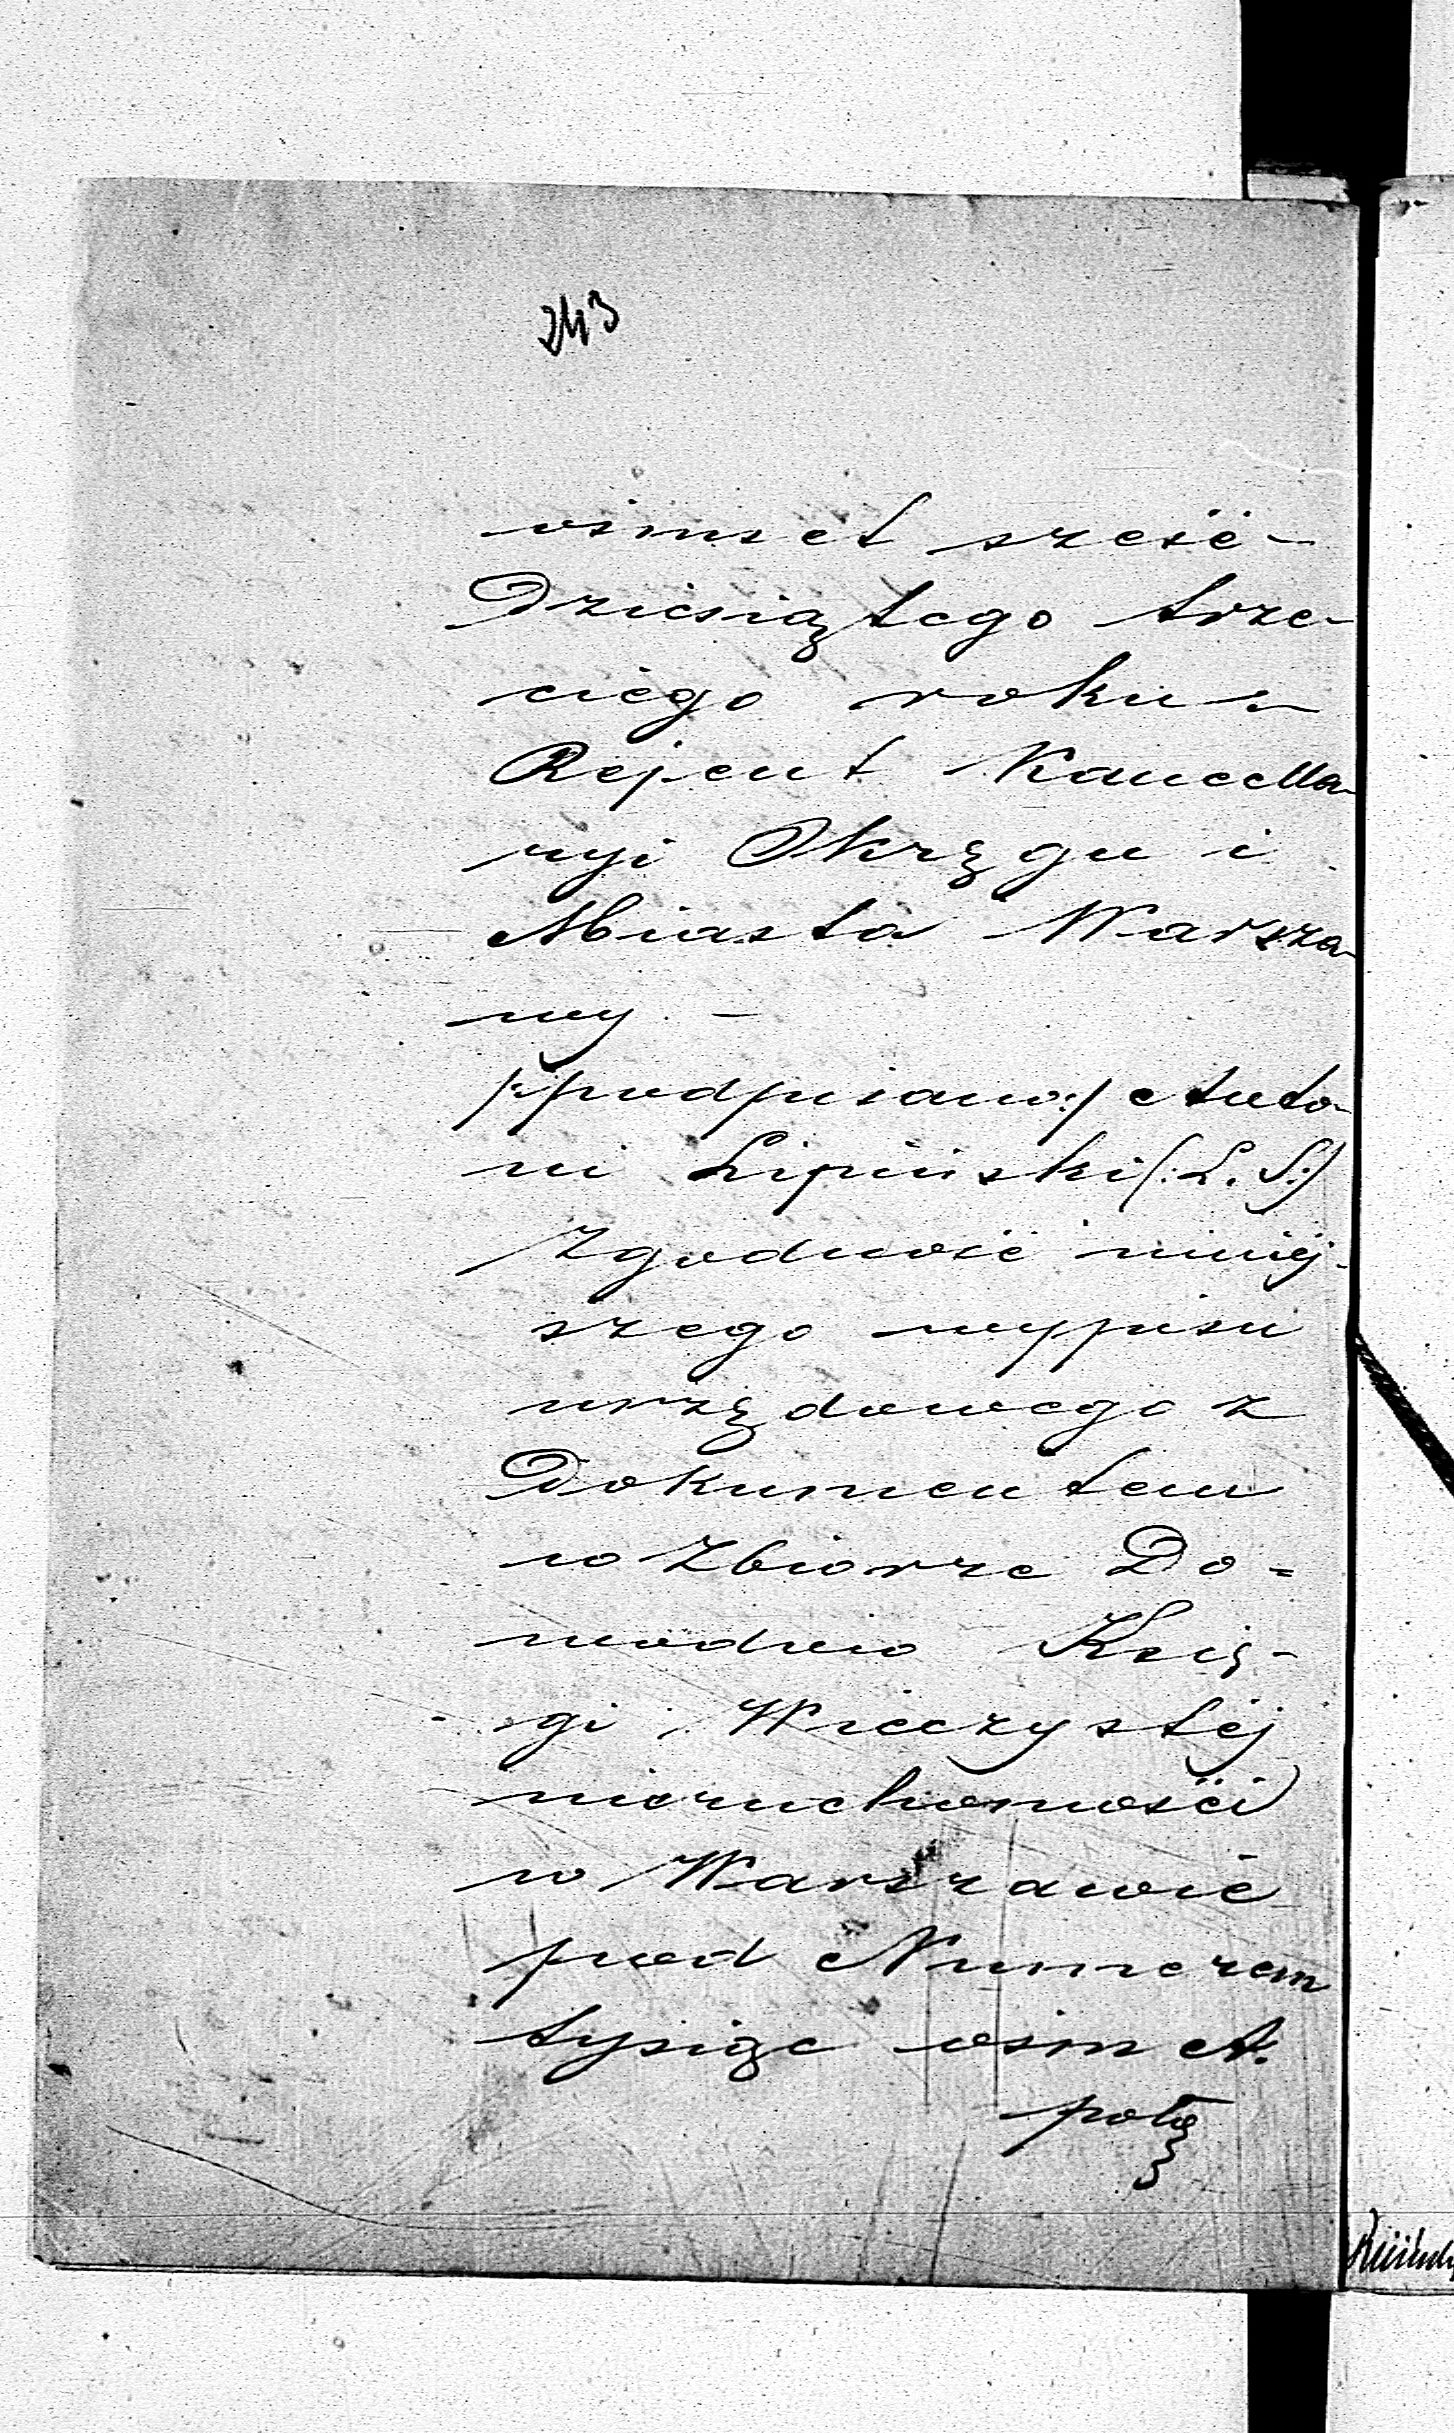 243
ośmset sześć-
Dziesiątego trze-
ciego roku
Rejent Kancella-
ryi Okręgu i
Miasta Warsza-
wy. -
/:podpisano:/ Anto-
ni Lipiński (:L. S:)
Zgodność niniéj-
szego wypisu
urzędowego z
Dokumentem
w Zbiorze Do=
wodów Księ-
gi Wieczystéj
nieruchomości
w Warszawie
pod Numerem
tysiąc ośmset